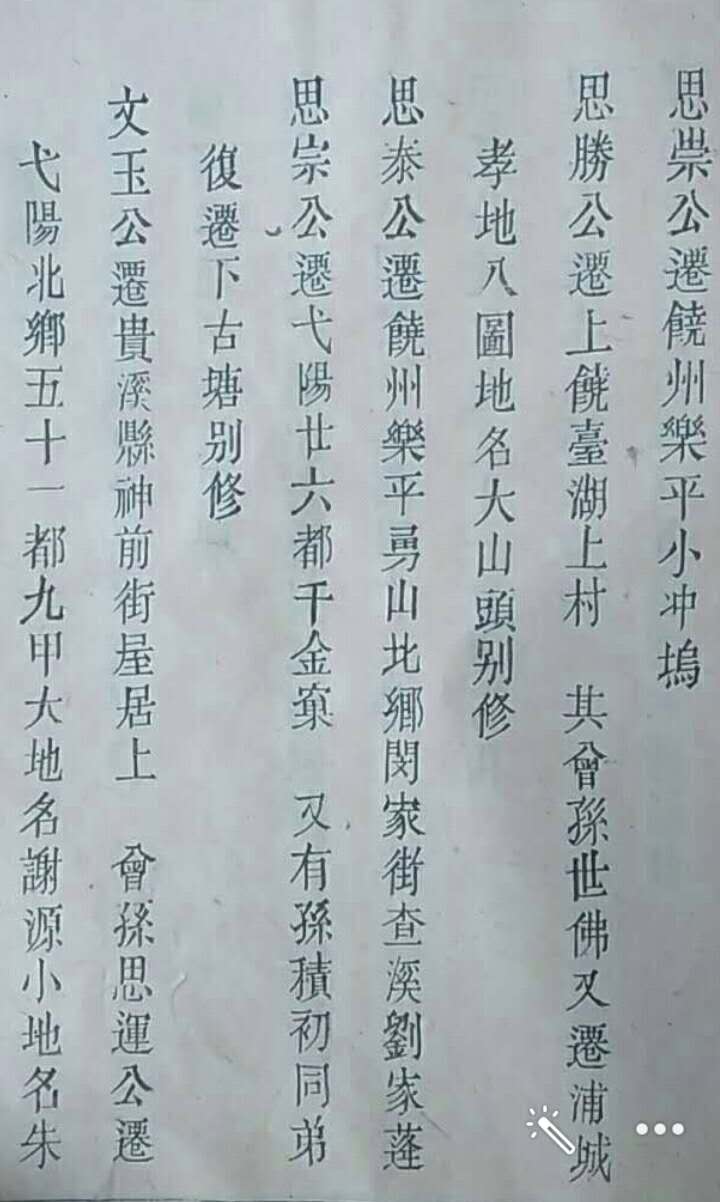 思崇公遷饒州樂平小冲塢
思勝公遷上饒臺湖上村 其曾孫世佛又遷浦城
孝地八圖地名大山頭别修
思泰公遷饒州樂平勇山北鄉閔家街查溪劉家蓬
思宗公遷弋陽廿六都千金窠 又有孫積初同弟
復遷下古塘别修
文玉公遷貴溪縣神前街屋居上 曾孫思運公遷
弋陽北鄉五十一都九甲大地名謝源小地名朱